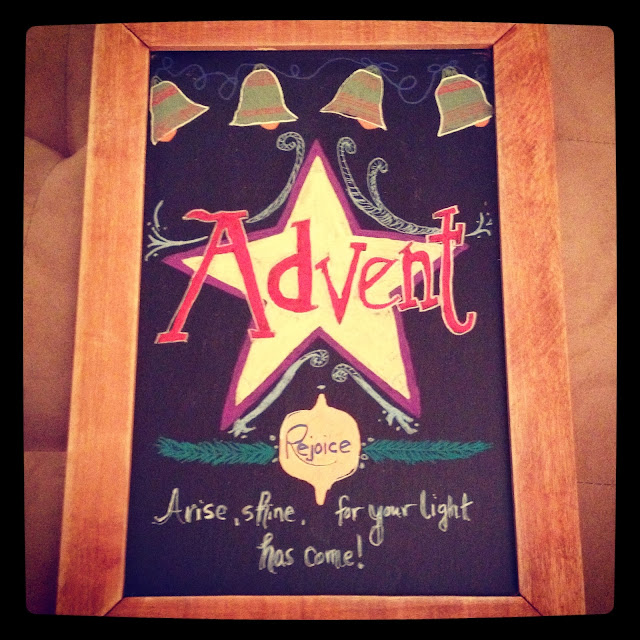 Advent
Rejoice
Arise, shine, for your light
has come!